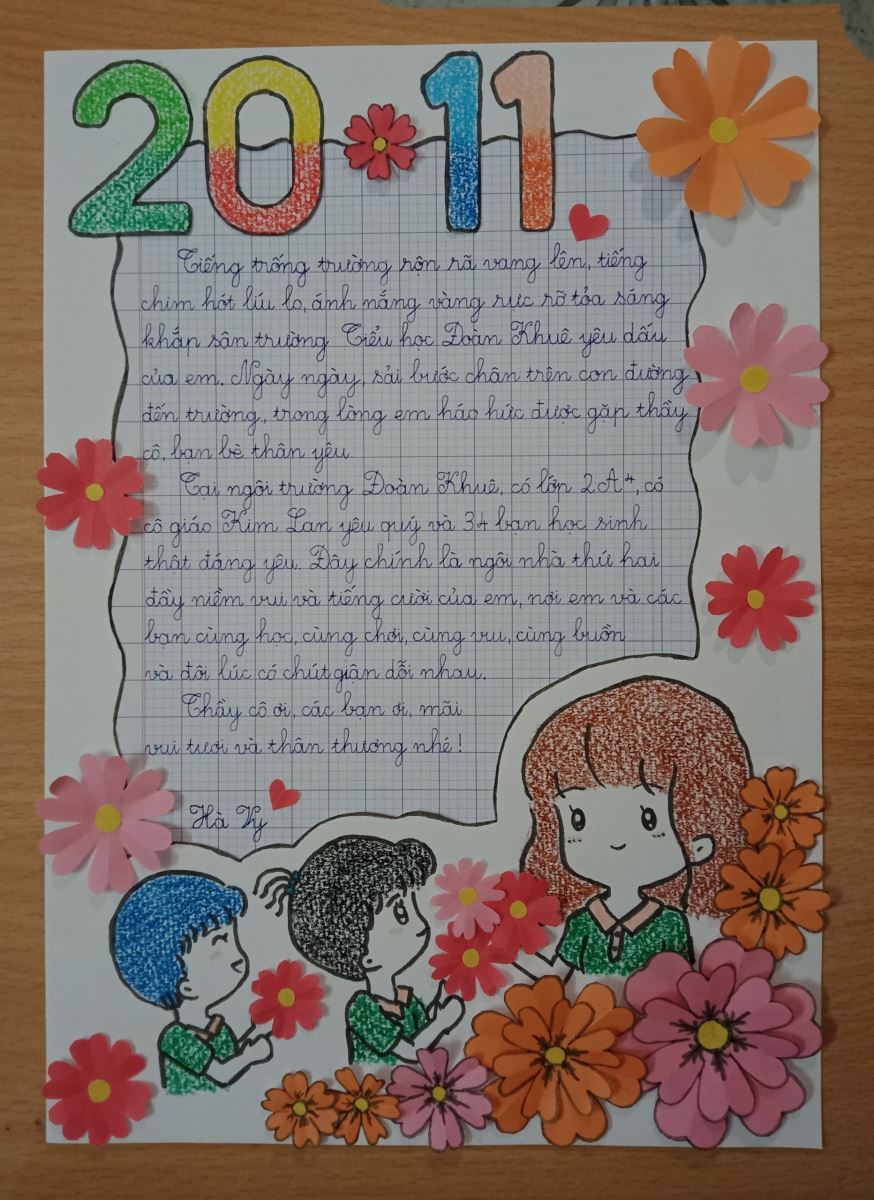 20 11
Tiếng trống trường rộn rã vang lên, tiếng
chim hót líu lo, ánh nắng vàng rực rỡ tỏa sáng
khắp sân trường Tiểu học Đoàn Khuê yêu dấu
của em. Ngày ngày, sải bước chân trên con đường
đến trường, trong lòng em háo hức được gặp thầy
cô, bạn bè thân yêu.
Tại ngôi trường Đoàn Khuê, có lớp 2A4, có
cô giáo Kim Lan yêu quý và 34 bạn học sinh
thật đáng yêu. Đây chính là ngôi nhà thứ hai
đầy niềm vui và tiếng cười của em, nơi em và các
bạn cùng học, cùng chơi, cùng vui, cùng buồn
và đôi lúc có chút giận dỗi nhau.
Thầy cô ơi, các bạn ơi, mãi
vui tươi và thân thương nhé!
Hà Vy